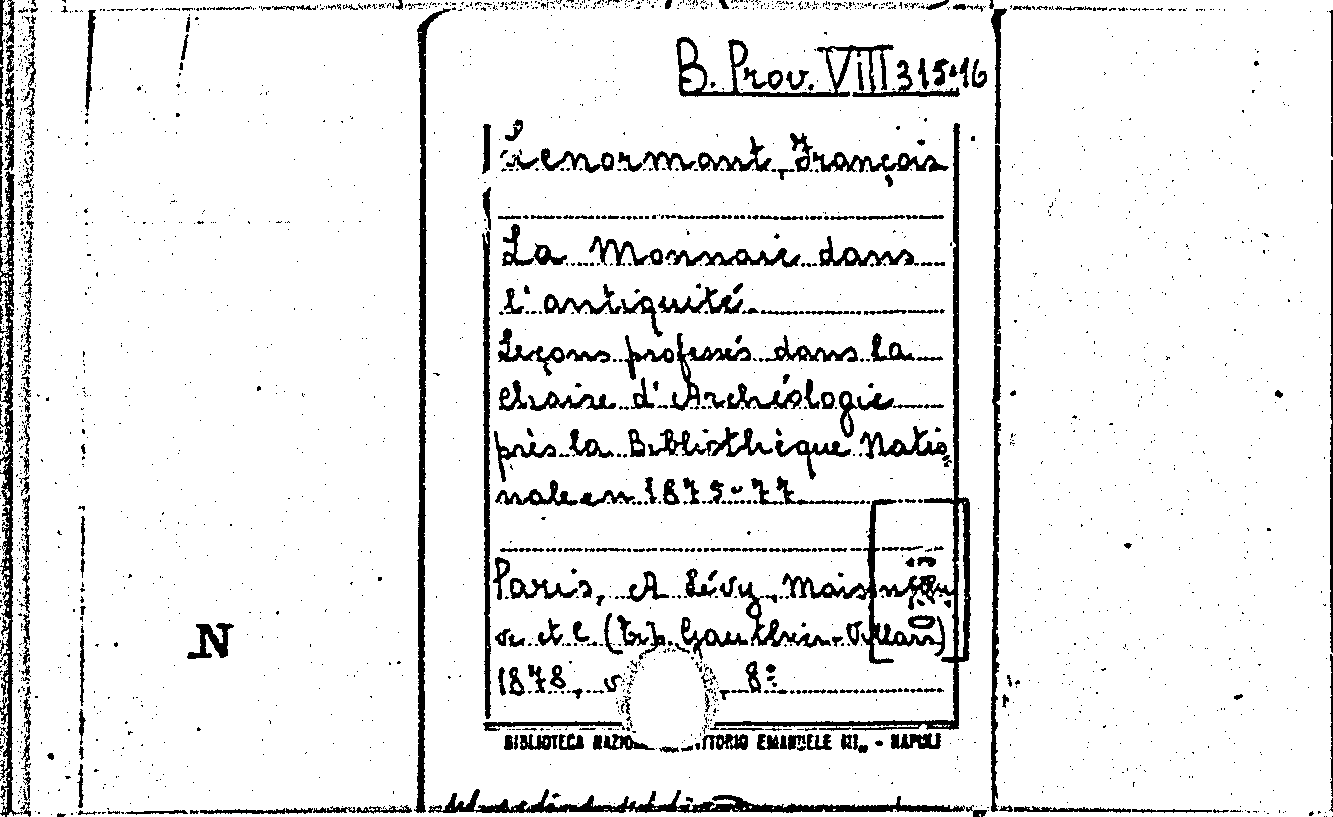 B. Prov. VIII 315-16
Lenormant, François
La Monnaie dans
l'antiquité.
Leçons professés dans la
chaire d'Archéologie
près la Bibliothèque Natio
nale en 1875-77
Paris, A Lévy, Maisonneu
ve et C. (Tip. Gauthier-Villars)
1878, v , 8º
N
BIBLIOTECA NAZIO TTORIO EMANUELE III„ - NAPOLI